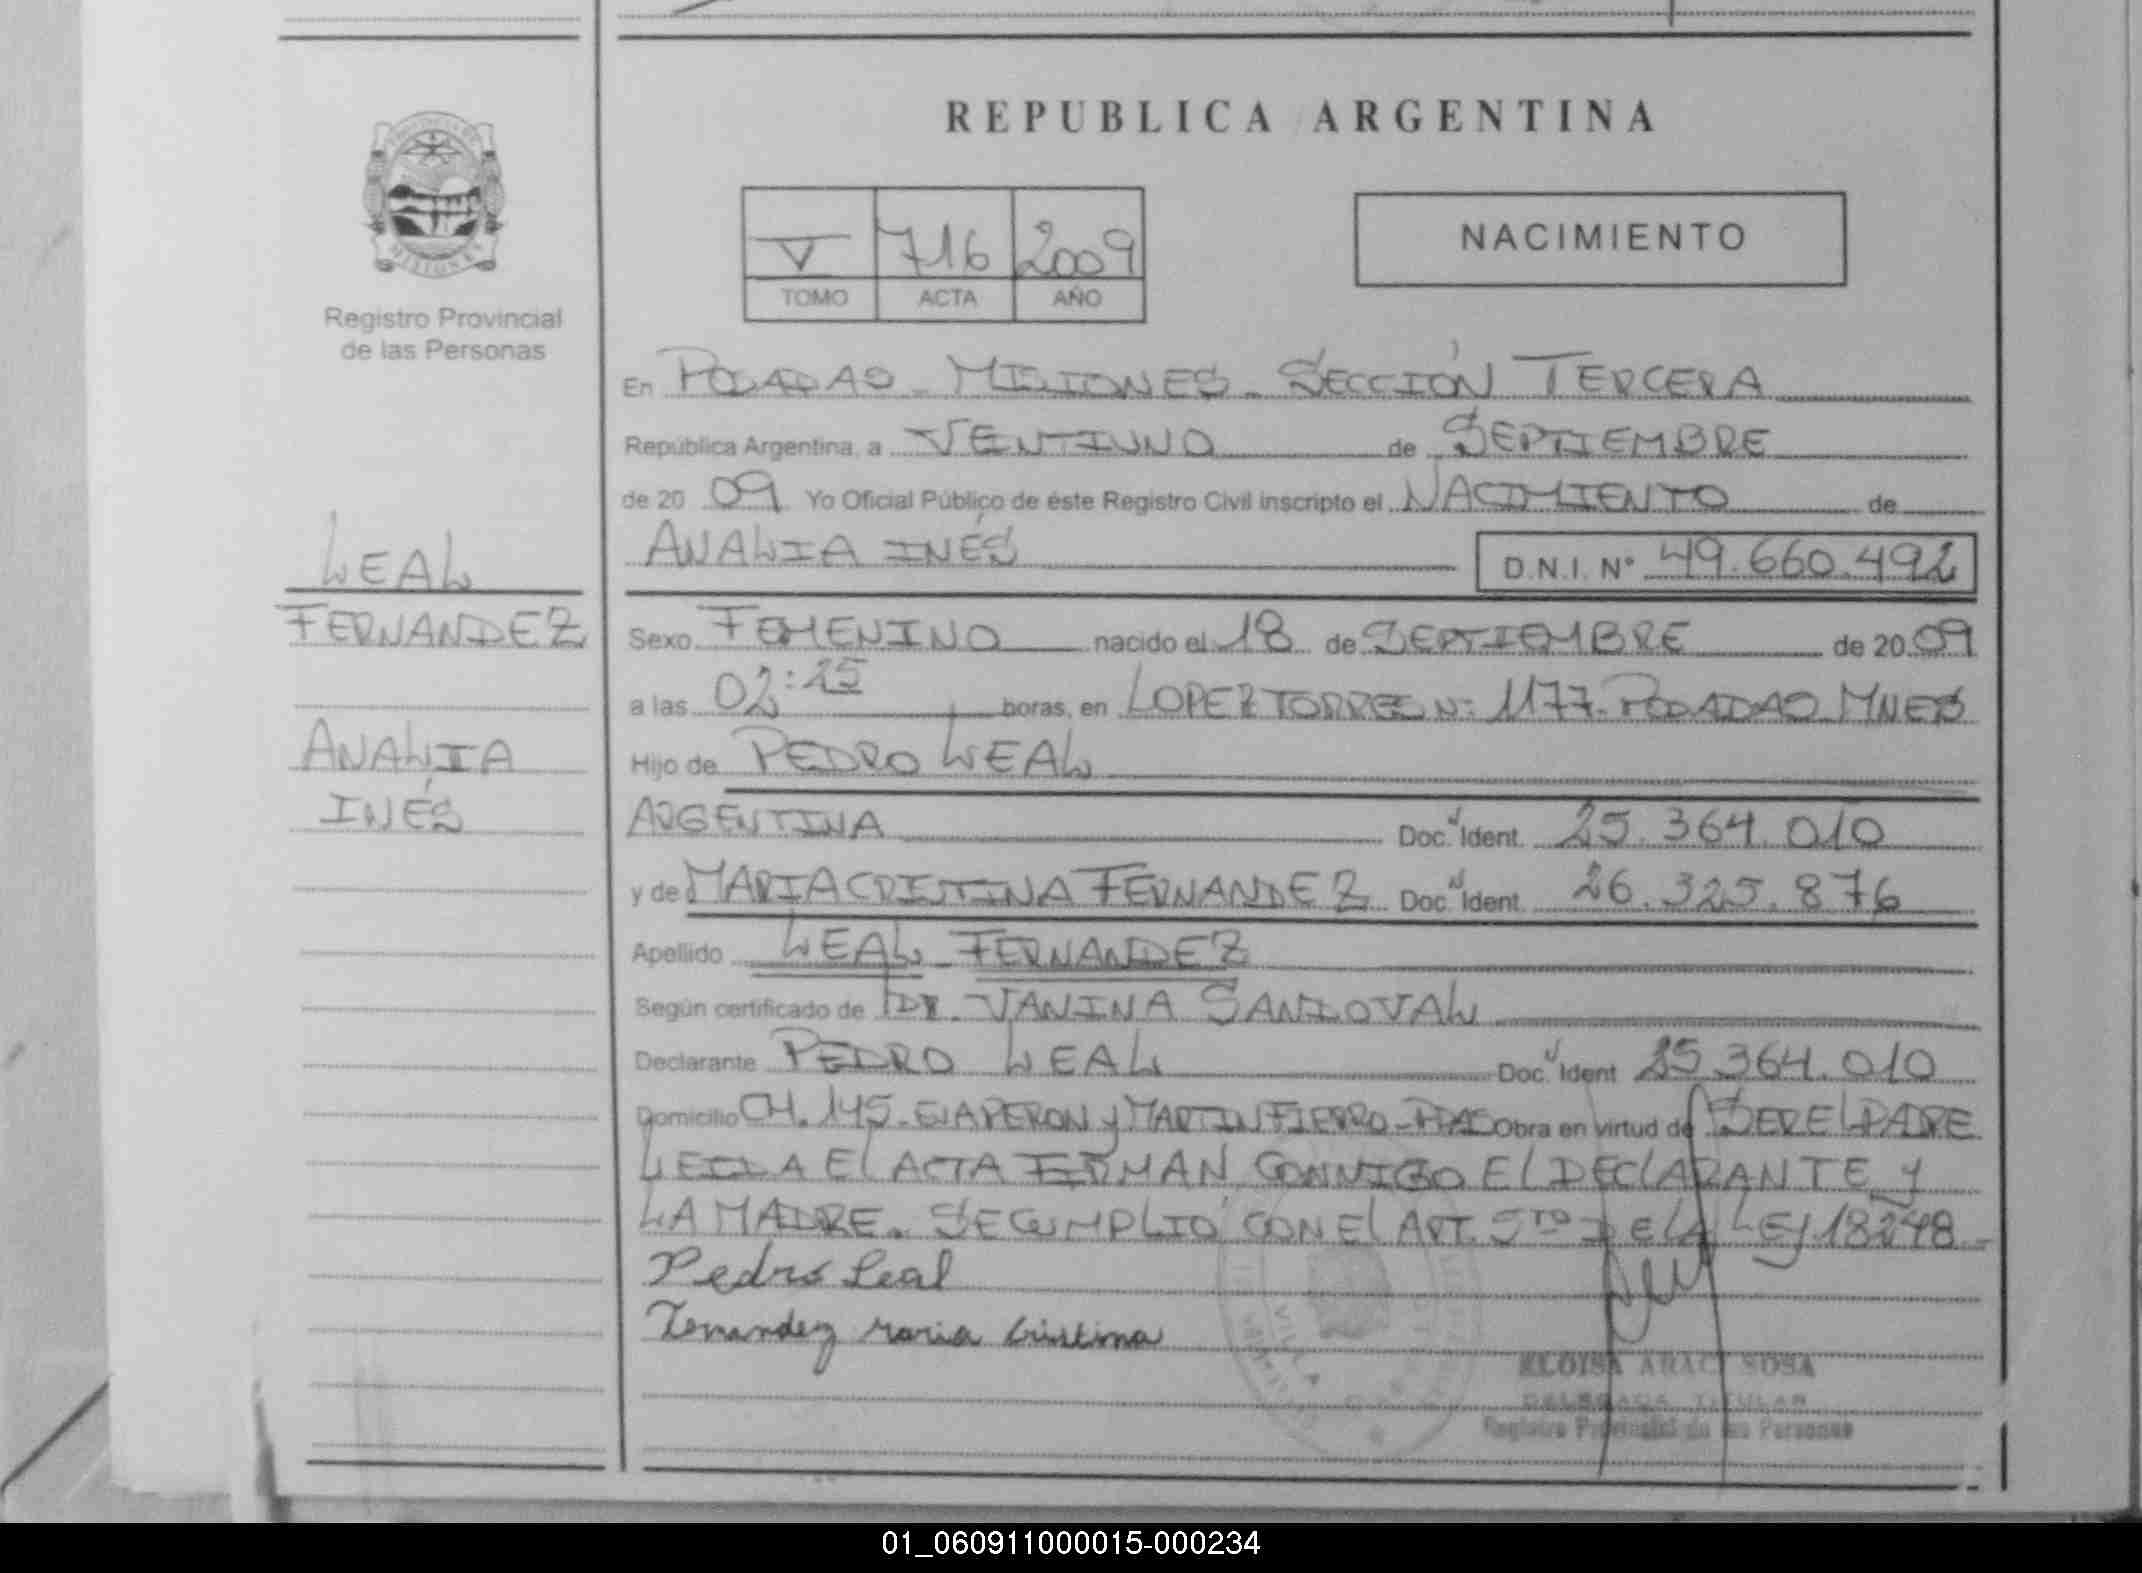 REPUBLICA ARGENTINA
V 716 2009
TOMO ACTA AÑO
NACIMIENTO
Registro Provincial
de las Personas
En POSADAS - MISIONES - SECCIÓN TERCERA
República Argentina, a VENTIUNO de SEPTIEMBRE
de 20 09 Yo Oficial Público de éste Registro Civil inscripto el NACIMIENTO de
ANALIA INÉS D.N.I. Nº 49.660.492
LEAL
FERNANDEZ
ANALIA
INÉS
Sexo FEMENINO nacido el 18 de SEPTIEMBRE de 20 09
a las 02:25 horas, en LOPEZ TORRES Nº 1177 - POSADAS MNES
Hijo de PEDRO LEAL
ARGENTINA Doc. Ident. 25.364.010
y de MARIA CRISTINA FERNANDEZ Doc. Ident. 26.325.876
Apellido LEAL FERNANDEZ
Según certificado de DR. VANINA SANDOVAL
Declarante PEDRO LEAL Doc. Ident 25.364.010
Domicilio CH. 145 - EVA PERON y MARTIN FIERRO - PDAS Obra en virtud de SER EL PADRE
LEIDA EL ACTA FIRMAN CONMIGO EL DECLARANTE y
LA MADRE. SE CUMPLIO CON EL ART. 5TO DE LA LEY 18248 -
Pedro Leal
Fernandez Maria Cristina
SOSA
DELEGADA TITULAR
Registro Provincial de las Personas
01_060911000015-000234